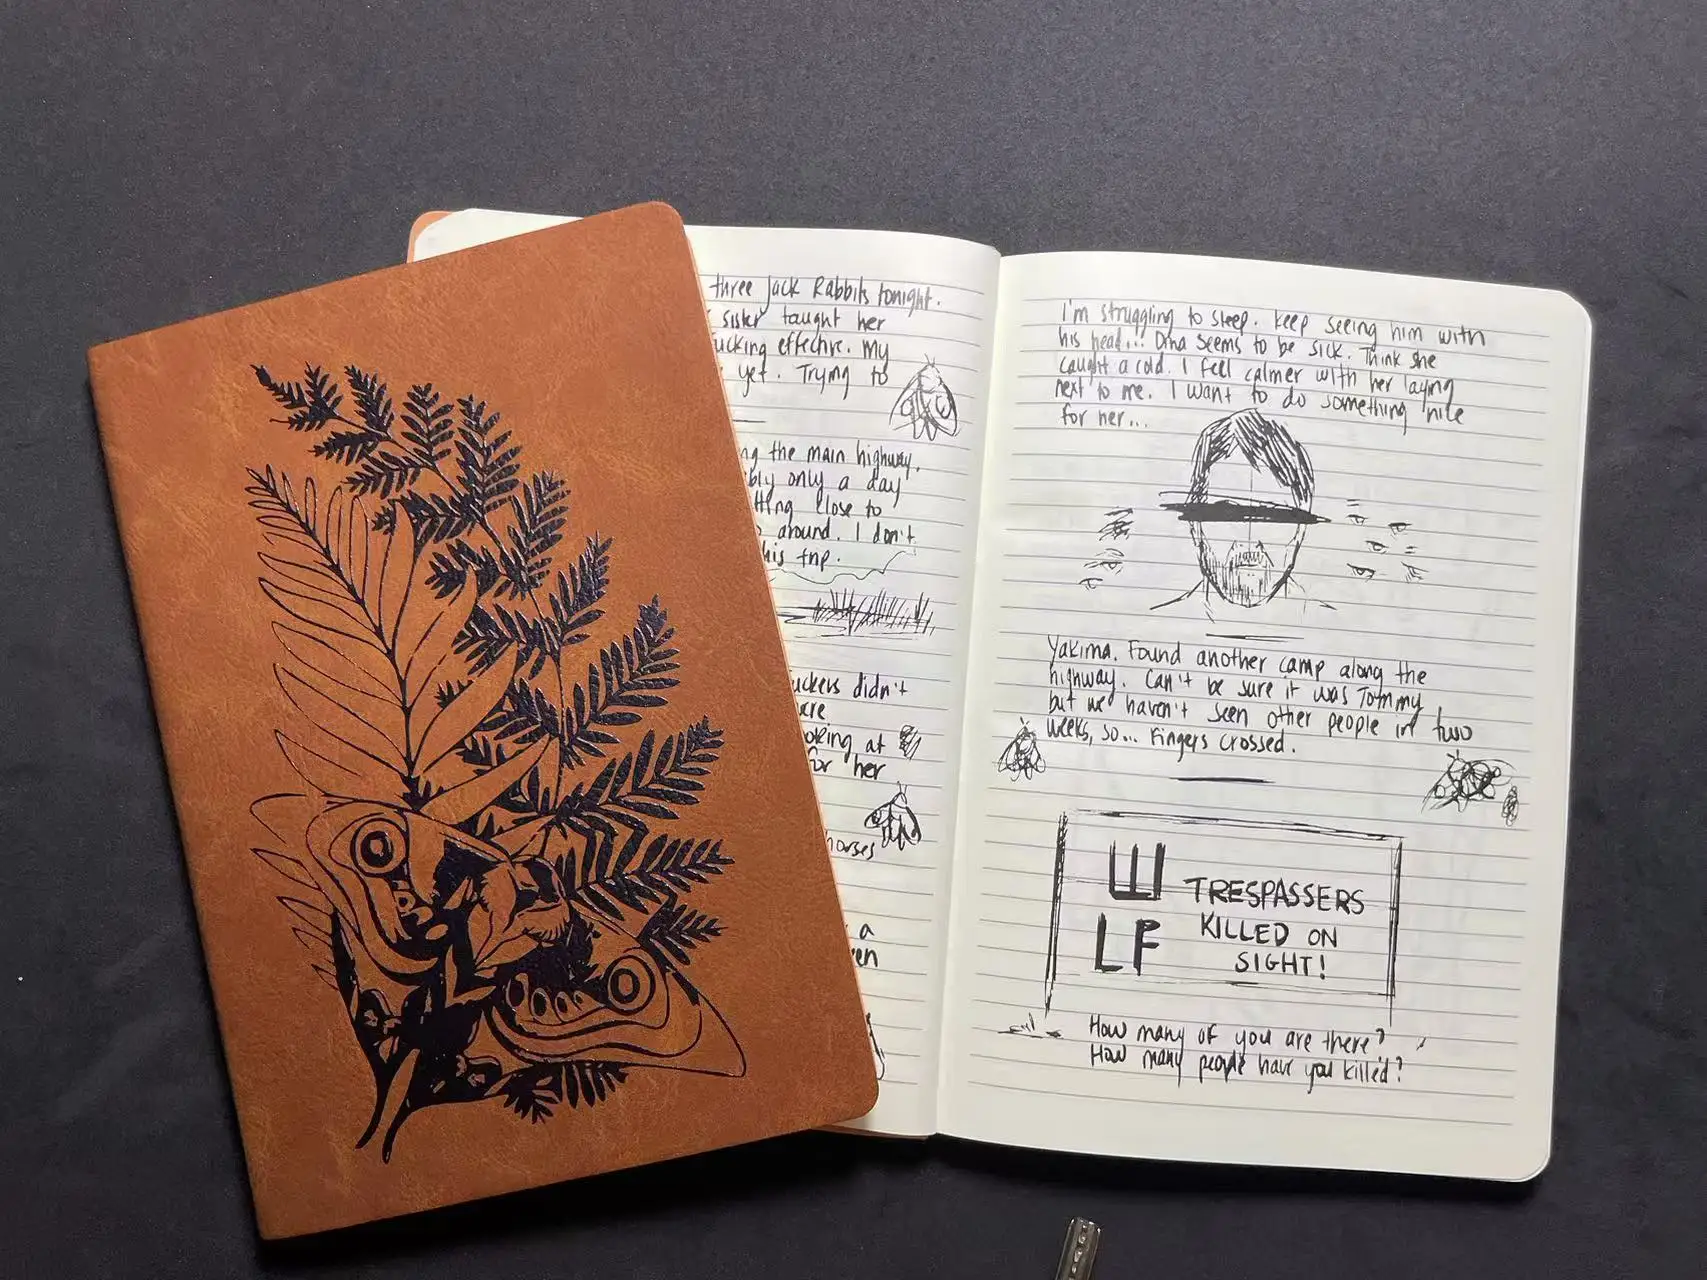 three Jack Rabbits tonight.
sister taught her
ucking effective. My
yet. Trying to
ng the main highway.
bly only a day
tting close to
around. I don't
his trip.
uckers didn't
are
ooking at
for her
horses
a
en
I'm struggling to sleep. Keep seeing him with
his head... Dina seems to be sick. Think she
caught a cold. I feel calmer with her laying
next to me. I want to do something nice
for her...
Yakima. Found another camp along the
highway. Can't be sure it was Tommy
but we haven't seen other people in two
weeks, so... Fingers crossed.
W TRESPASSERS
LF KILLED ON
SIGHT!
How many of you are there?
How many people have you killed?